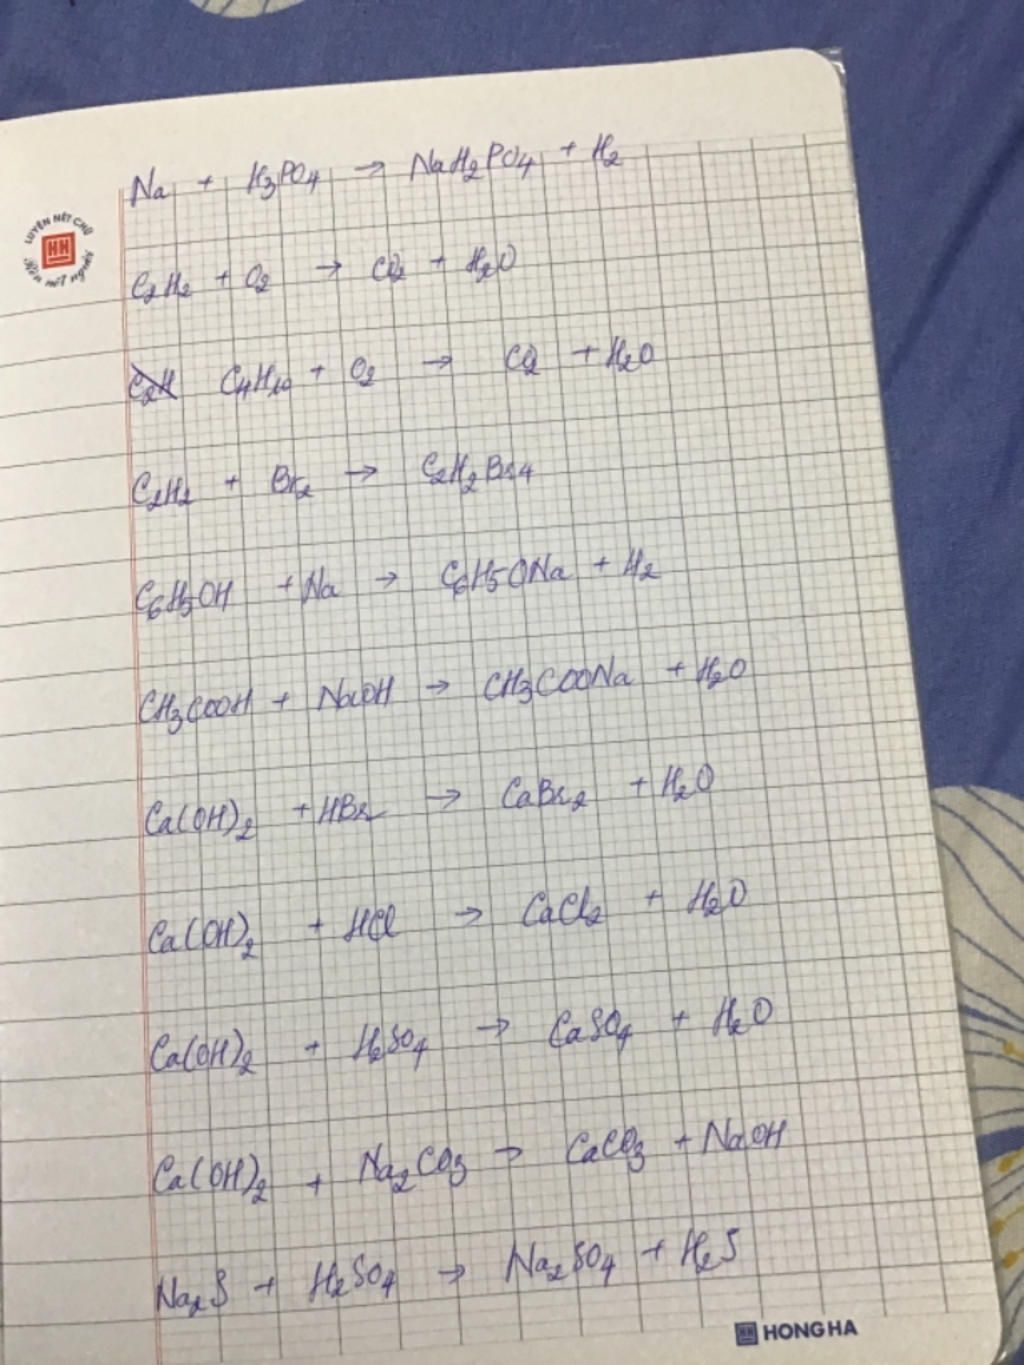 Na + H3PO4 → NaH2PO4 + H2
LUYỆN NÉT CHỮ
HN
Rèn nết người
C2H2 + O2 → CO2 + H2O
C2H C4H10 + O2 → CO2 + H2O
C2H2 + Br2 → C2H2Br4
C6H5OH + Na → C6H5ONa + H2
CH3COOH + NaOH → CH3COONa + H2O
Ca(OH)2 + HBr → CaBr2 + H2O
Ca(OH)2 + HCl → CaCl2 + H2O
Ca(OH)2 + H2SO4 → CaSO4 + H2O
Ca(OH)2 + Na2CO3 → CaCO3 + NaOH
Na2S + H2SO4 → Na2SO4 + H2S
HN HONG HA